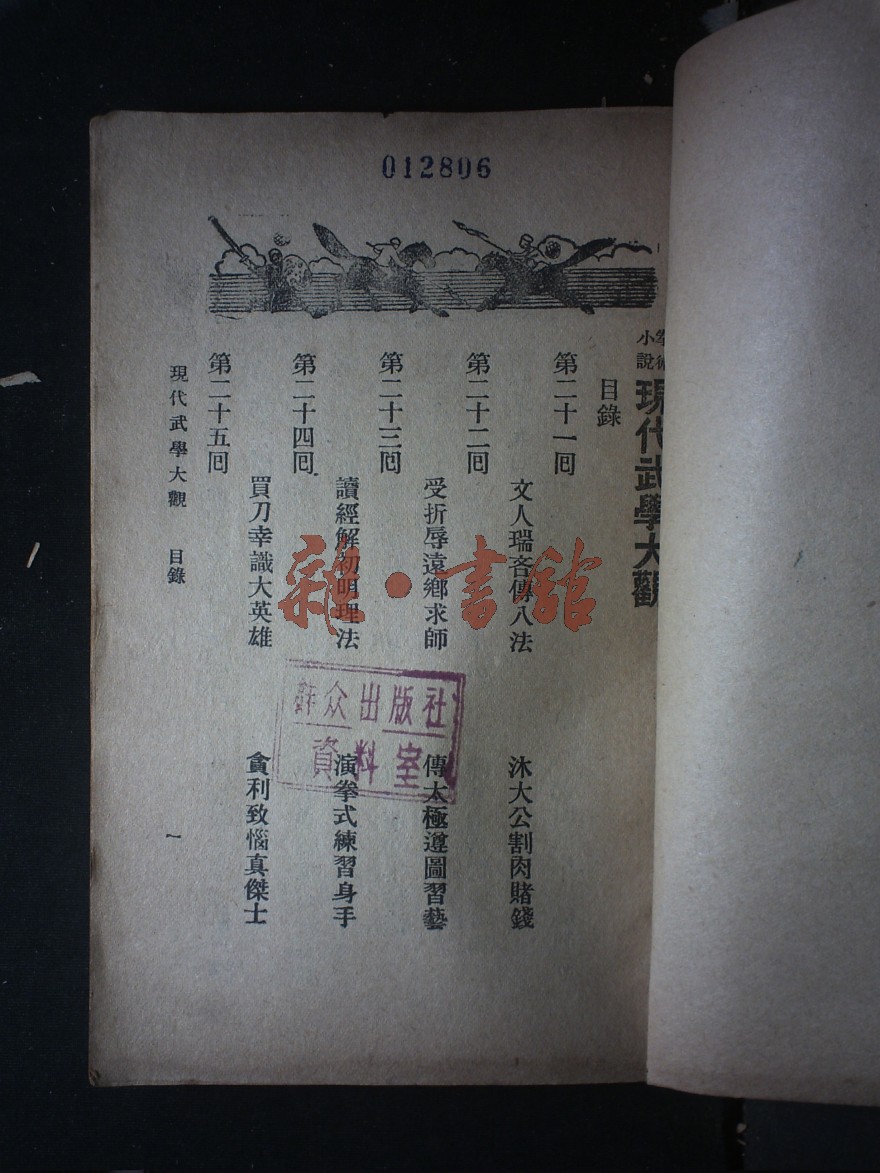 012806
拳術
小說
現代武學大觀
目錄
第二十一回
文人瑞吝傳八法 沐大公割肉賭錢
第二十二回
受折辱遠鄉求師 傳太極遵圖習藝
第二十三回
讀經解初明理法 演拳式練習身手
第二十四回
買刀幸識大英雄 貪利致惱真傑士
第二十五回
現代武學大觀 目錄 一
雜·書館
群众出版社
資料室